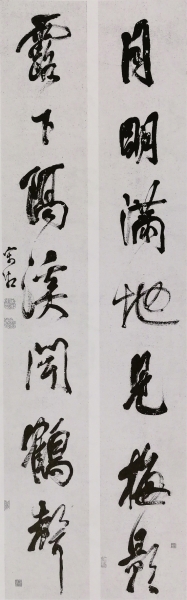 月明滿地見梅影
露下隔溪聞鶴聲